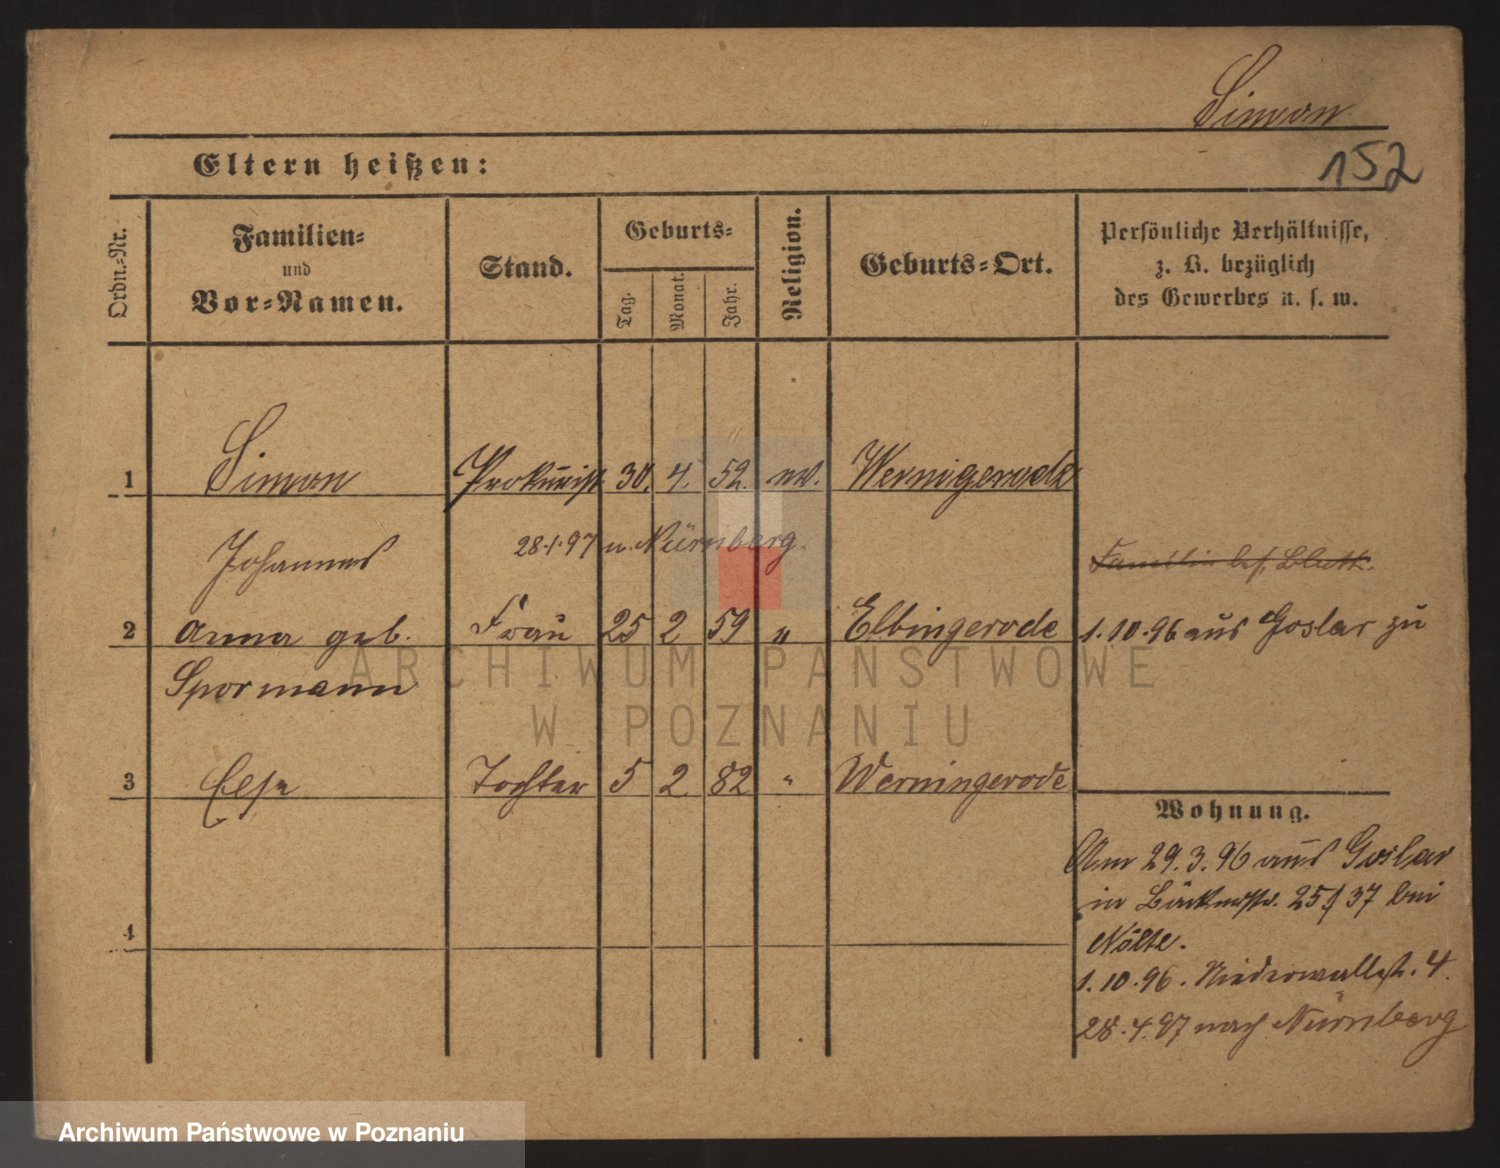 Simon
152
Eltern heißen:
Ordn.-Nr.
Familien-
und
Vor-Namen.
Stand.
Geburts-
Tag.
Monat.
Jahr.
Religion.
Geburts-Ort.
Persönliche Verhältnisse,
z. B. bezüglich
des Gewerbes u. s. w.
1 Simon Prokurist 30. 4. 52. ev. Wernigerode
Johannes 28.4.97 n. Nürnberg.
Familie bes. Blatt.
2 Anna geb. Frau 25 2 59 " Elbingerode 1.10.96 aus Goslar zu
Spormann
3 Else Tochter 5 2 82 " Werningerode
Wohnung.
Am 29.3.96 aus Goslar
in 37 bei
Nölte.
4
1.10.96. Niederwallst. 4.
28.4.97 nach Nürnberg
ARCHIWUM PAŃSTWOWE
W POZNANIU
Archiwum Państwowe w Poznaniu